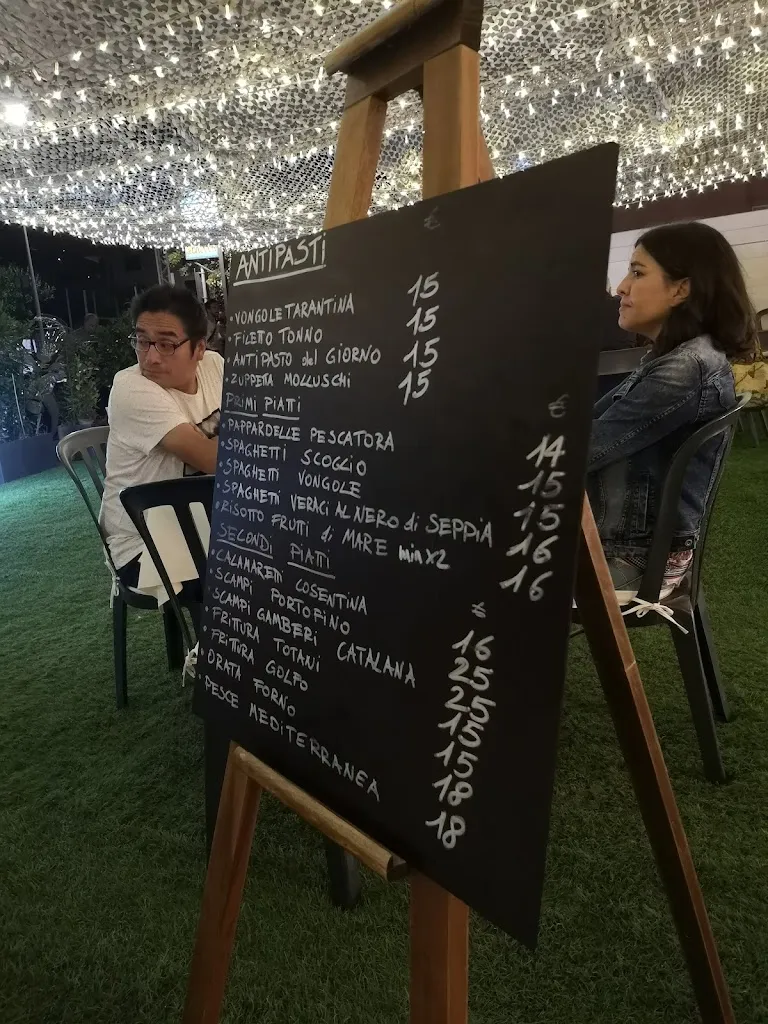 €
ANTIPASTI
• VONGOLE TARANTINA 15
• FILETTO TONNO 15
• ANTIPASTO del GIORNO 15
• ZUPPETTA MOLLUSCHI 15
PRIMI PIATTI €
• PAPPARDELLE PESCATORA 14
• SPAGHETTI SCOGLIO 15
• SPAGHETTI VONGOLE 15
• SPAGHETTI VERACI AL NERO di SEPPIA 16
• RISOTTO FRUTTI di MARE min x2 16
SECONDI PIATTI €
• CALAMARETTI COSENTINA 16
• SCAMPI PORTOFINO 25
• SCAMPI GAMBERI CATALANA 25
• FRITTURA TOTANI 15
• FRITTURA GOLFO 15
• ORATA FORNO 18
• PESCE MEDITERRANEA 18